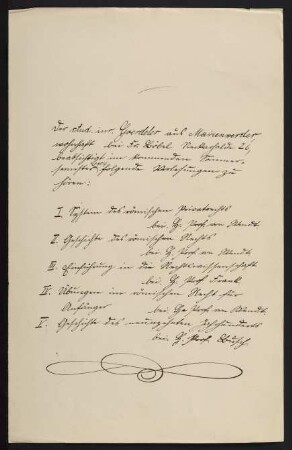 Der stud. iur. Goerdeler aus Marienwerder
wohnhaft bei Fr. Böbel Neckarhalde 26,
beabsichtigt im kommenden Sommer-
semester folgende Vorlesungen zu
hören:
I. System des römischen Privatrechts
bei H. Prof. von Wendt.
II. Geschichte des römischen Rechts
bei H. Prof. von Wendt.
III. Einführung in die Rechtswissenschaft
bei H. Prof. Frank
IV. Übungen im römischen Recht für
Anfänger bei H. Prof. von Wendt.
V. Geschichte des neunzehnten Jahrhunderts
bei H. Prof. Busch.